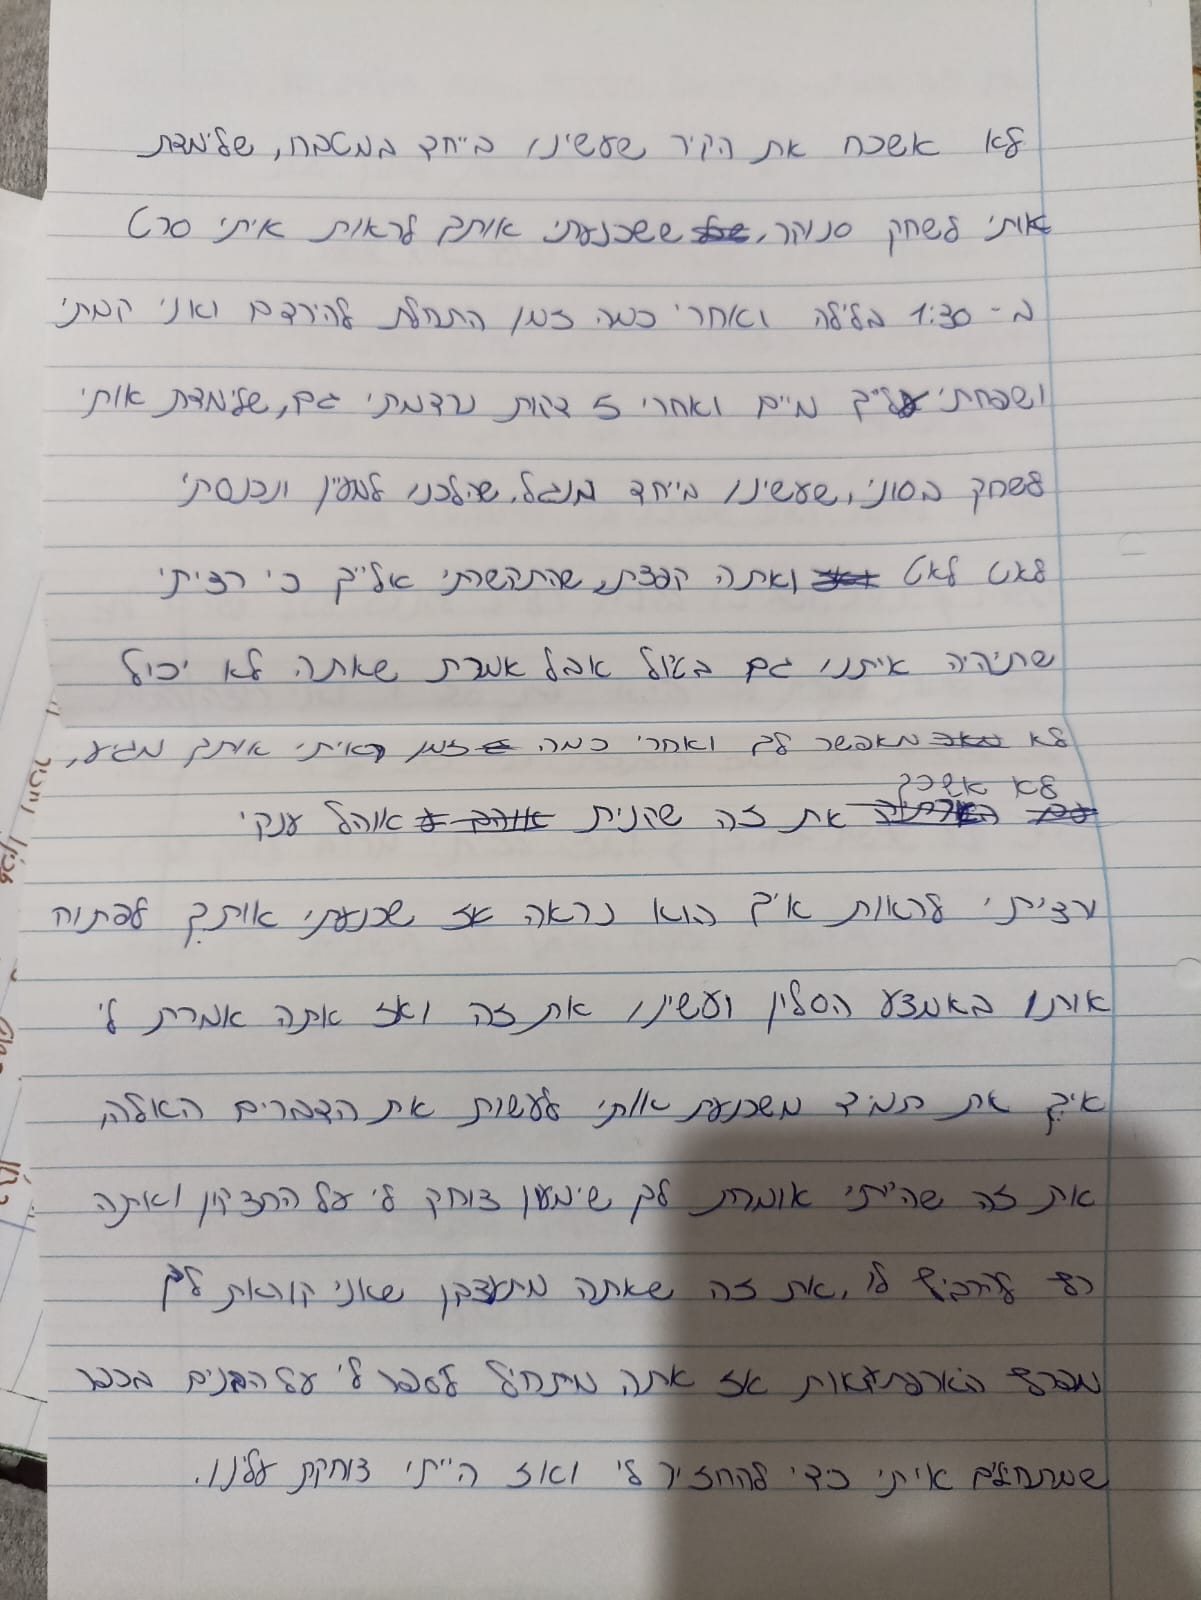 לא אשכח את הקיר שעשינו ביחד במטבח, שלימדת
אותי לשחק סנוקר, ששכנעתי אותך לראות איתי סרט
ב- 1:30 בלילה ואחרי כמה זמן התחלת להירדם ואני קמתי
ושפכתי עליך מים ואחרי 5 דקות נרדמתי גם, שלימדת אותי
לשחק בסוני, שעשינו ביחד מנגל, שהלכנו למעין ונכנסתי
לאט לאט ואתה קפצת, שהתקשרתי אלייך כי רציתי
שתיהיה איתנו גם בטיול אבל אמרת שאתה לא יכול
לא מאפשר לך ואחרי כמה זמן ראיתי אותך מגיע,
לא אשכך
את זה שקנית אוהל ענקי
ורציתי לראות איך הוא נראה אז שכנעתי אותך לפתוח
אותו באמצע הסלון ועשינו את זה ואז אתה אמרת לי
איך את תמיד משכנעת אותי לעשות את הדברים האלה,
את זה שהייתי אומרת לך שימעון צוחק לי על התיקון ואתה
רץ להרביץ לו, את זה שאתה מתעצבן שאני קוראת לך
מפרץ ההרפתקאות אז אתה מתחיל לספר לי על הבנים בכפר
שמתחילים איתי כדי להחזיר לי ואז הייתי צוחקת עלינו.